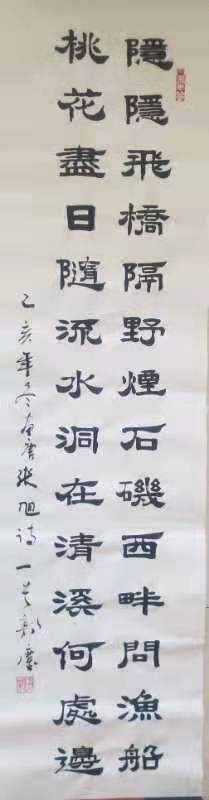 隱隱飛橋隔野煙石磯西畔問漁船
桃花盡日隨流水洞在清溪何處邊
乙亥年冬書唐張旭詩一首